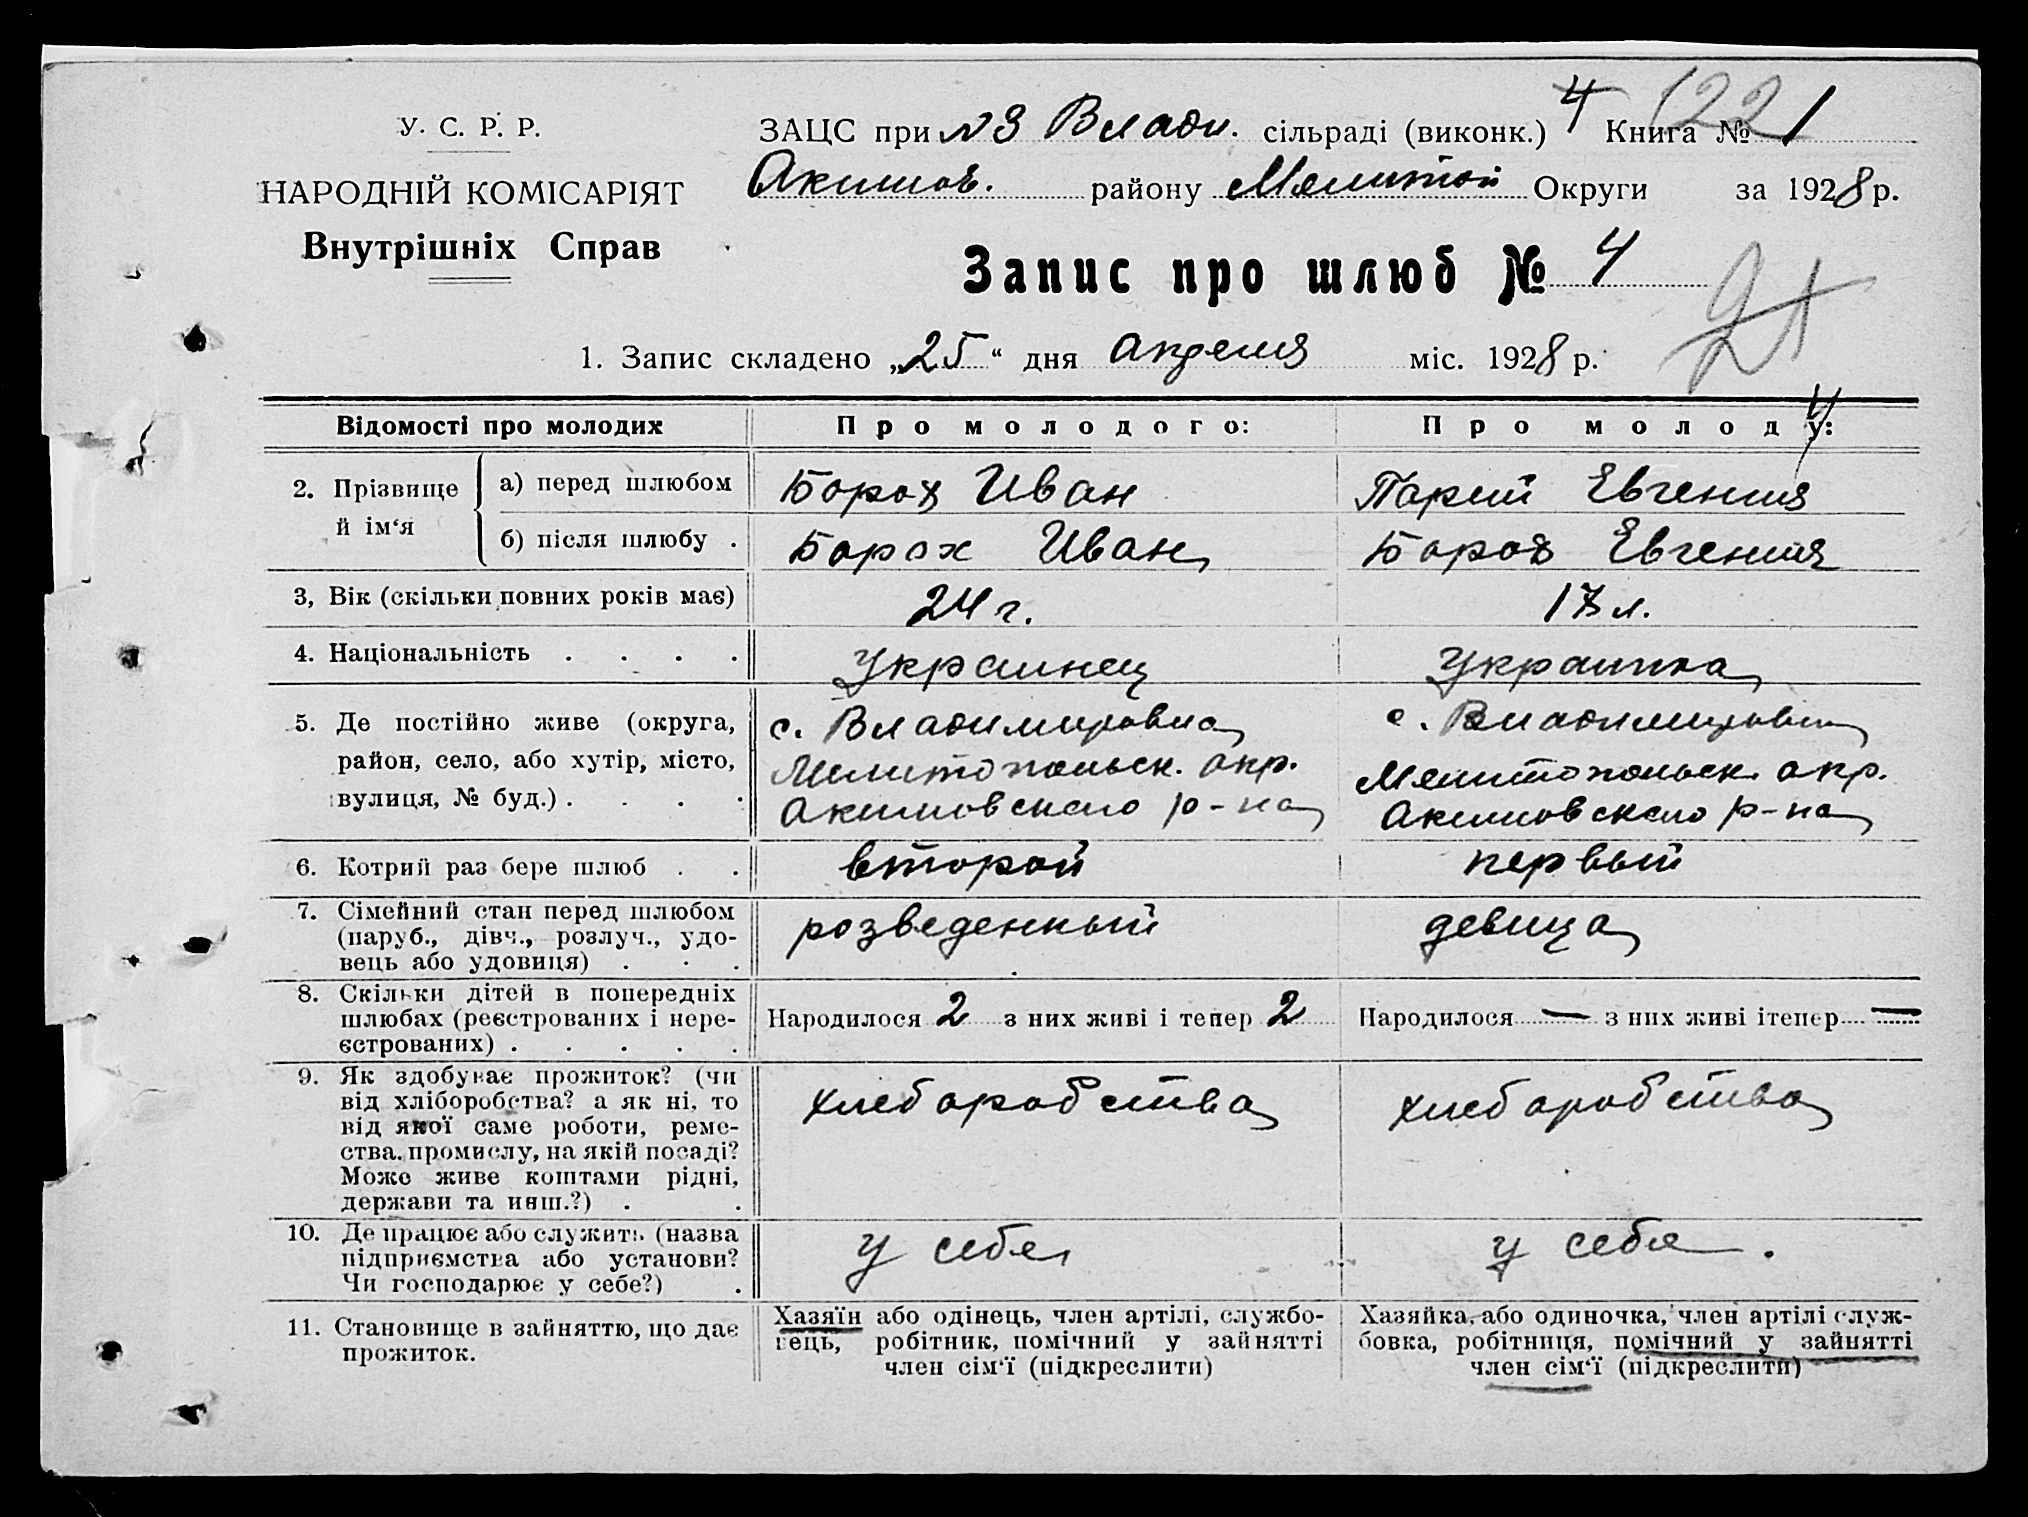 У. С. Р. Р.
НАРОДНІЙ КОМІСАРІЯТ
Внутрішніх Справ
ЗАЦС при №3 Влади. сільраді (виконк.) 4 Книга № 1
122
Акимов. району Мелитоп Округи за 1928 р.
Запис про шлюб № 4
1. Запис складено „25“ дня апреля міс. 1928 р.
Відомості про молодих
Про молодого:
Про молоду:
2. Прізвище й ім‘я
а) перед шлюбом
Борох Иван
Парий Евгения
б) після шлюбу .
Борох Иван
Борох Евгения
3, Вік (скільки повних років має)
24 г.
17 л.
4. Національність . . . .
Украинец
Украинка
5. Де постійно живе (округа,
район, село, або хутір, місто,
вулиця, № буд.) . . . .
с. Владимировка
Мелитопольск. окр.
Акимовского р-на
с. Владимировка
Мелитопольск. окр.
Акимовского р-на
6. Котрий раз бере шлюб . .
второй
первый
7. Сімейний стан перед шлюбом
(паруб., дівч., розлуч., удо-
вець або удовиця) . . .
розведенный
девица
8. Скільки дітей в попередніх
шлюбах (реєстрованих і нере-
єстрованих) . . . . .
Народилося 2 з них живі і тепер 2
Народилося — з них живі ітепер —
9. Як здобуває прожиток? (чи
від хліборобства? а як ні, то
від якої саме роботи, реме-
ства, промислу, на якій посаді?
Може живе коштами рідні,
держави та инш.?) . .
хлеборобства
хлеборобства
10. Де працює або служить (назва
підприємства або установи?
Чи господарює у себе?) .
у себя
у себя .
11. Становище в зайняттю, що дає
прожиток.
Хазяїн або одінець, член артілі, службо-
вець, робітник, помічний у зайнятті
член сім‘ї (підкреслити)
Хазяйка, або одиночка, член артілі служ-
бовка, робітниця, помічний у зайнятті
член сім‘ї (підкреслити)